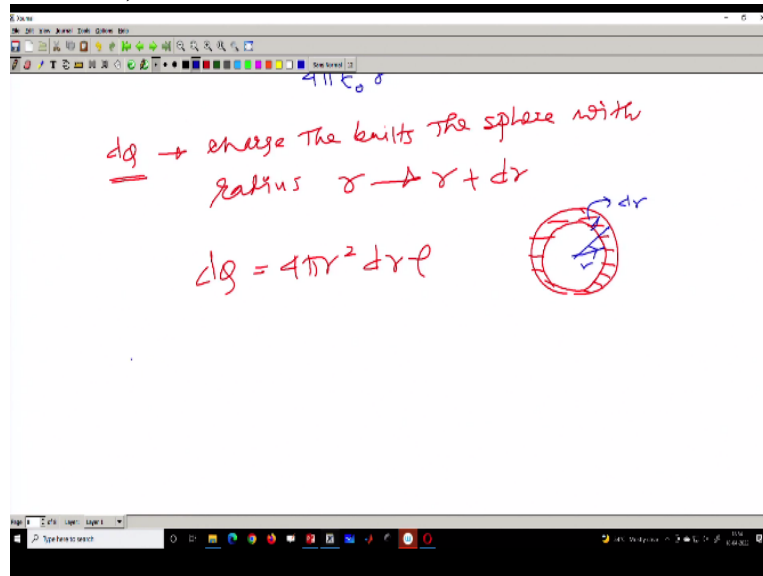 Journal
File Edit View Journal Tools Options Help
Sans Normal 12
4πε₀ r
dQ → charge The builts The sphere with
radius r → r + dr
dr
r
dQ = 4πr² dr ρ
Page Layer: Layer 1
Type here to search